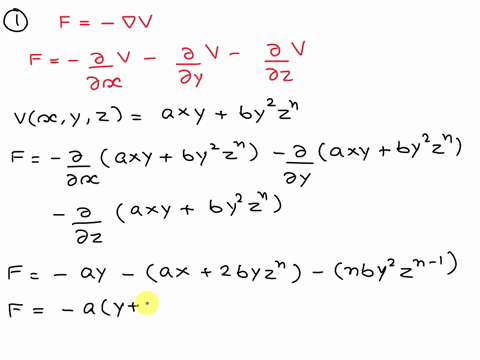 ① F = - ∇V
F = - ∂/∂x V - ∂/∂y V - ∂/∂z V
V(x, y, z) = axy + by²zⁿ
F = - ∂/∂x (axy + by²zⁿ) - ∂/∂y (axy + by²zⁿ)
- ∂/∂z (axy + by²zⁿ)
F = - ay - (ax + 2byzⁿ) - (nby²zⁿ⁻¹)
F = - a(y+